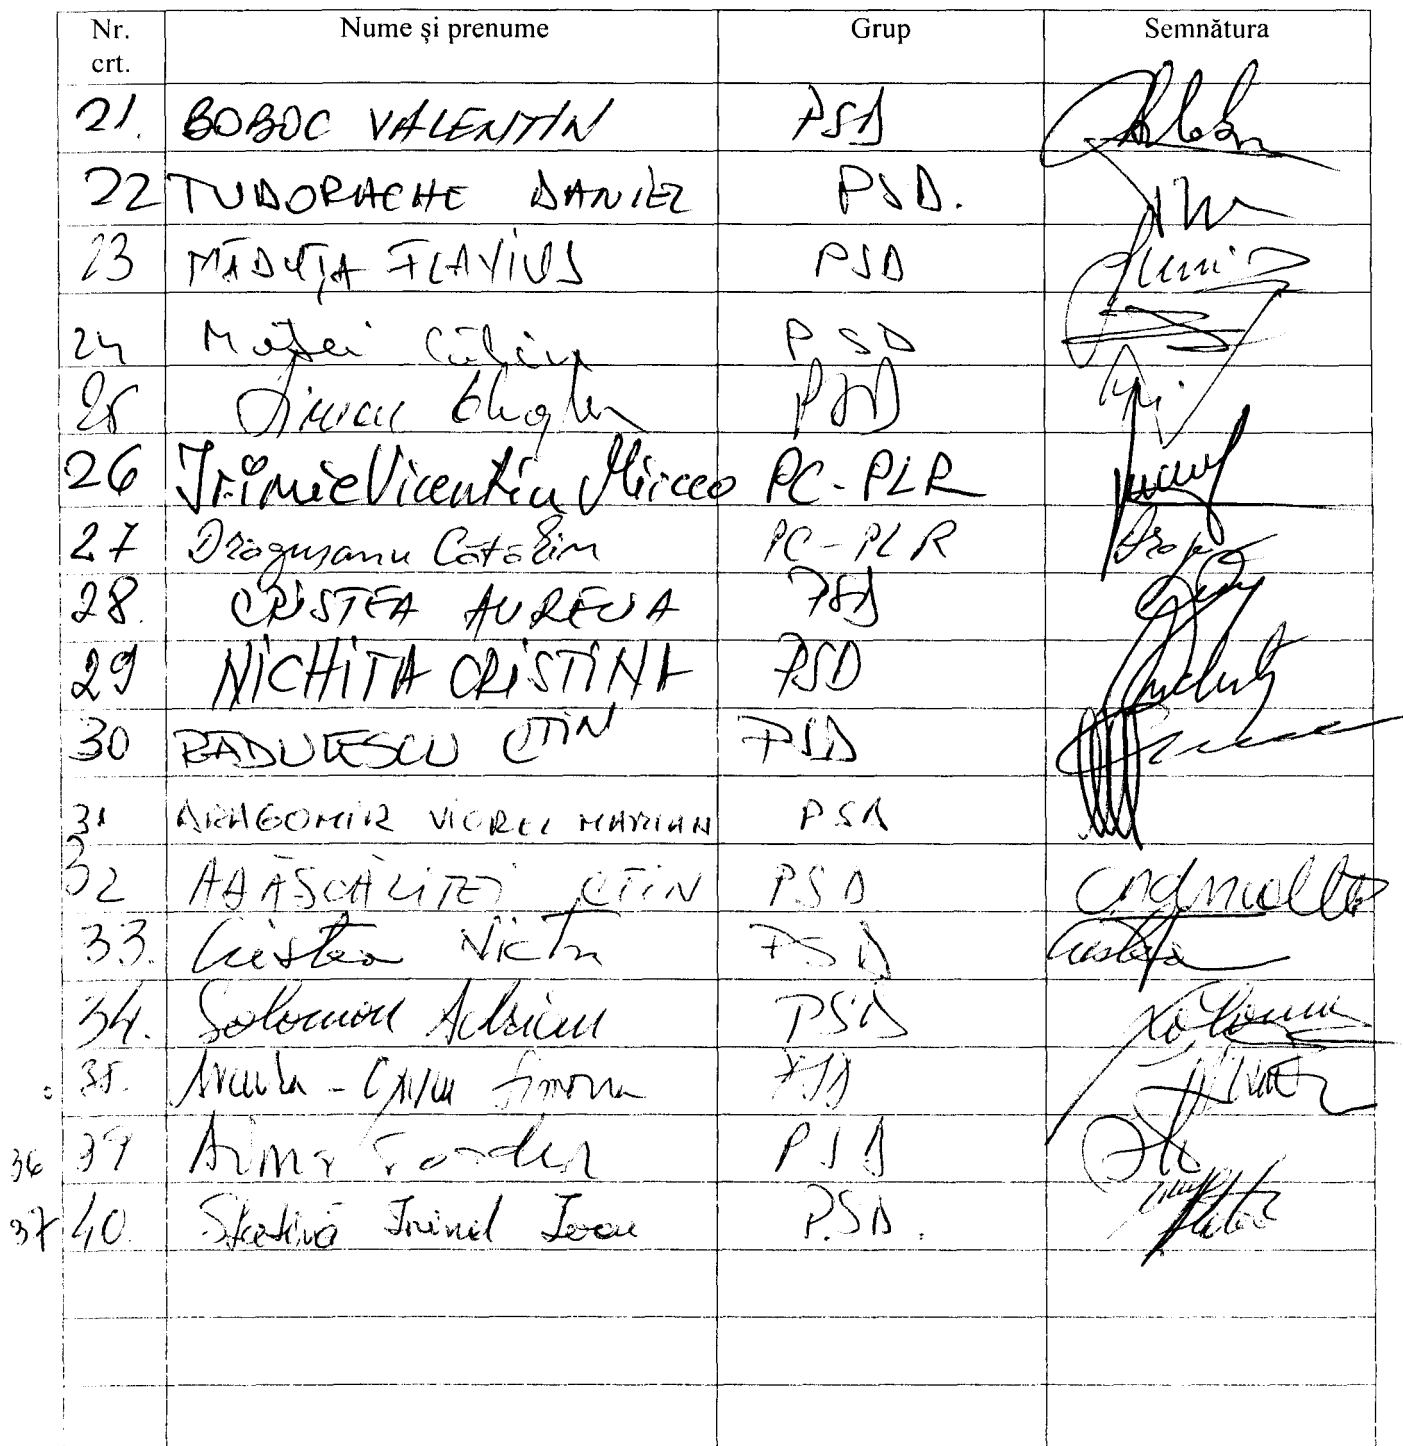 Nr. crt. Nume și prenume Grup Semnătura
21. BOBOC VALENTIN PSD
22 TUDORACHE DANIEL PSD.
23 MĂDUȚA FLAVIUS PSD
24 Matei Călin PSD
25 PSD
26 Irimie Vicentiu Mircea PC-PLR
27 Drăgușanu Cătălin PC-PLR
28. CRISTEA AURELIA PSD
29 NICHITA CRISTINA PSD
30 RADULESCU CTIN PSD
31 DRAGOMIR VIOREL MARIAN PSD
32 ADĂSCĂLIȚEI CTIN PSD
33. Cristea Victor PSD Cristea
34. Solomon Adrian PSD Solomon
35. Simona PSD
36 39 PSD
37 40. Stativă Irinel Ioan P.SD.